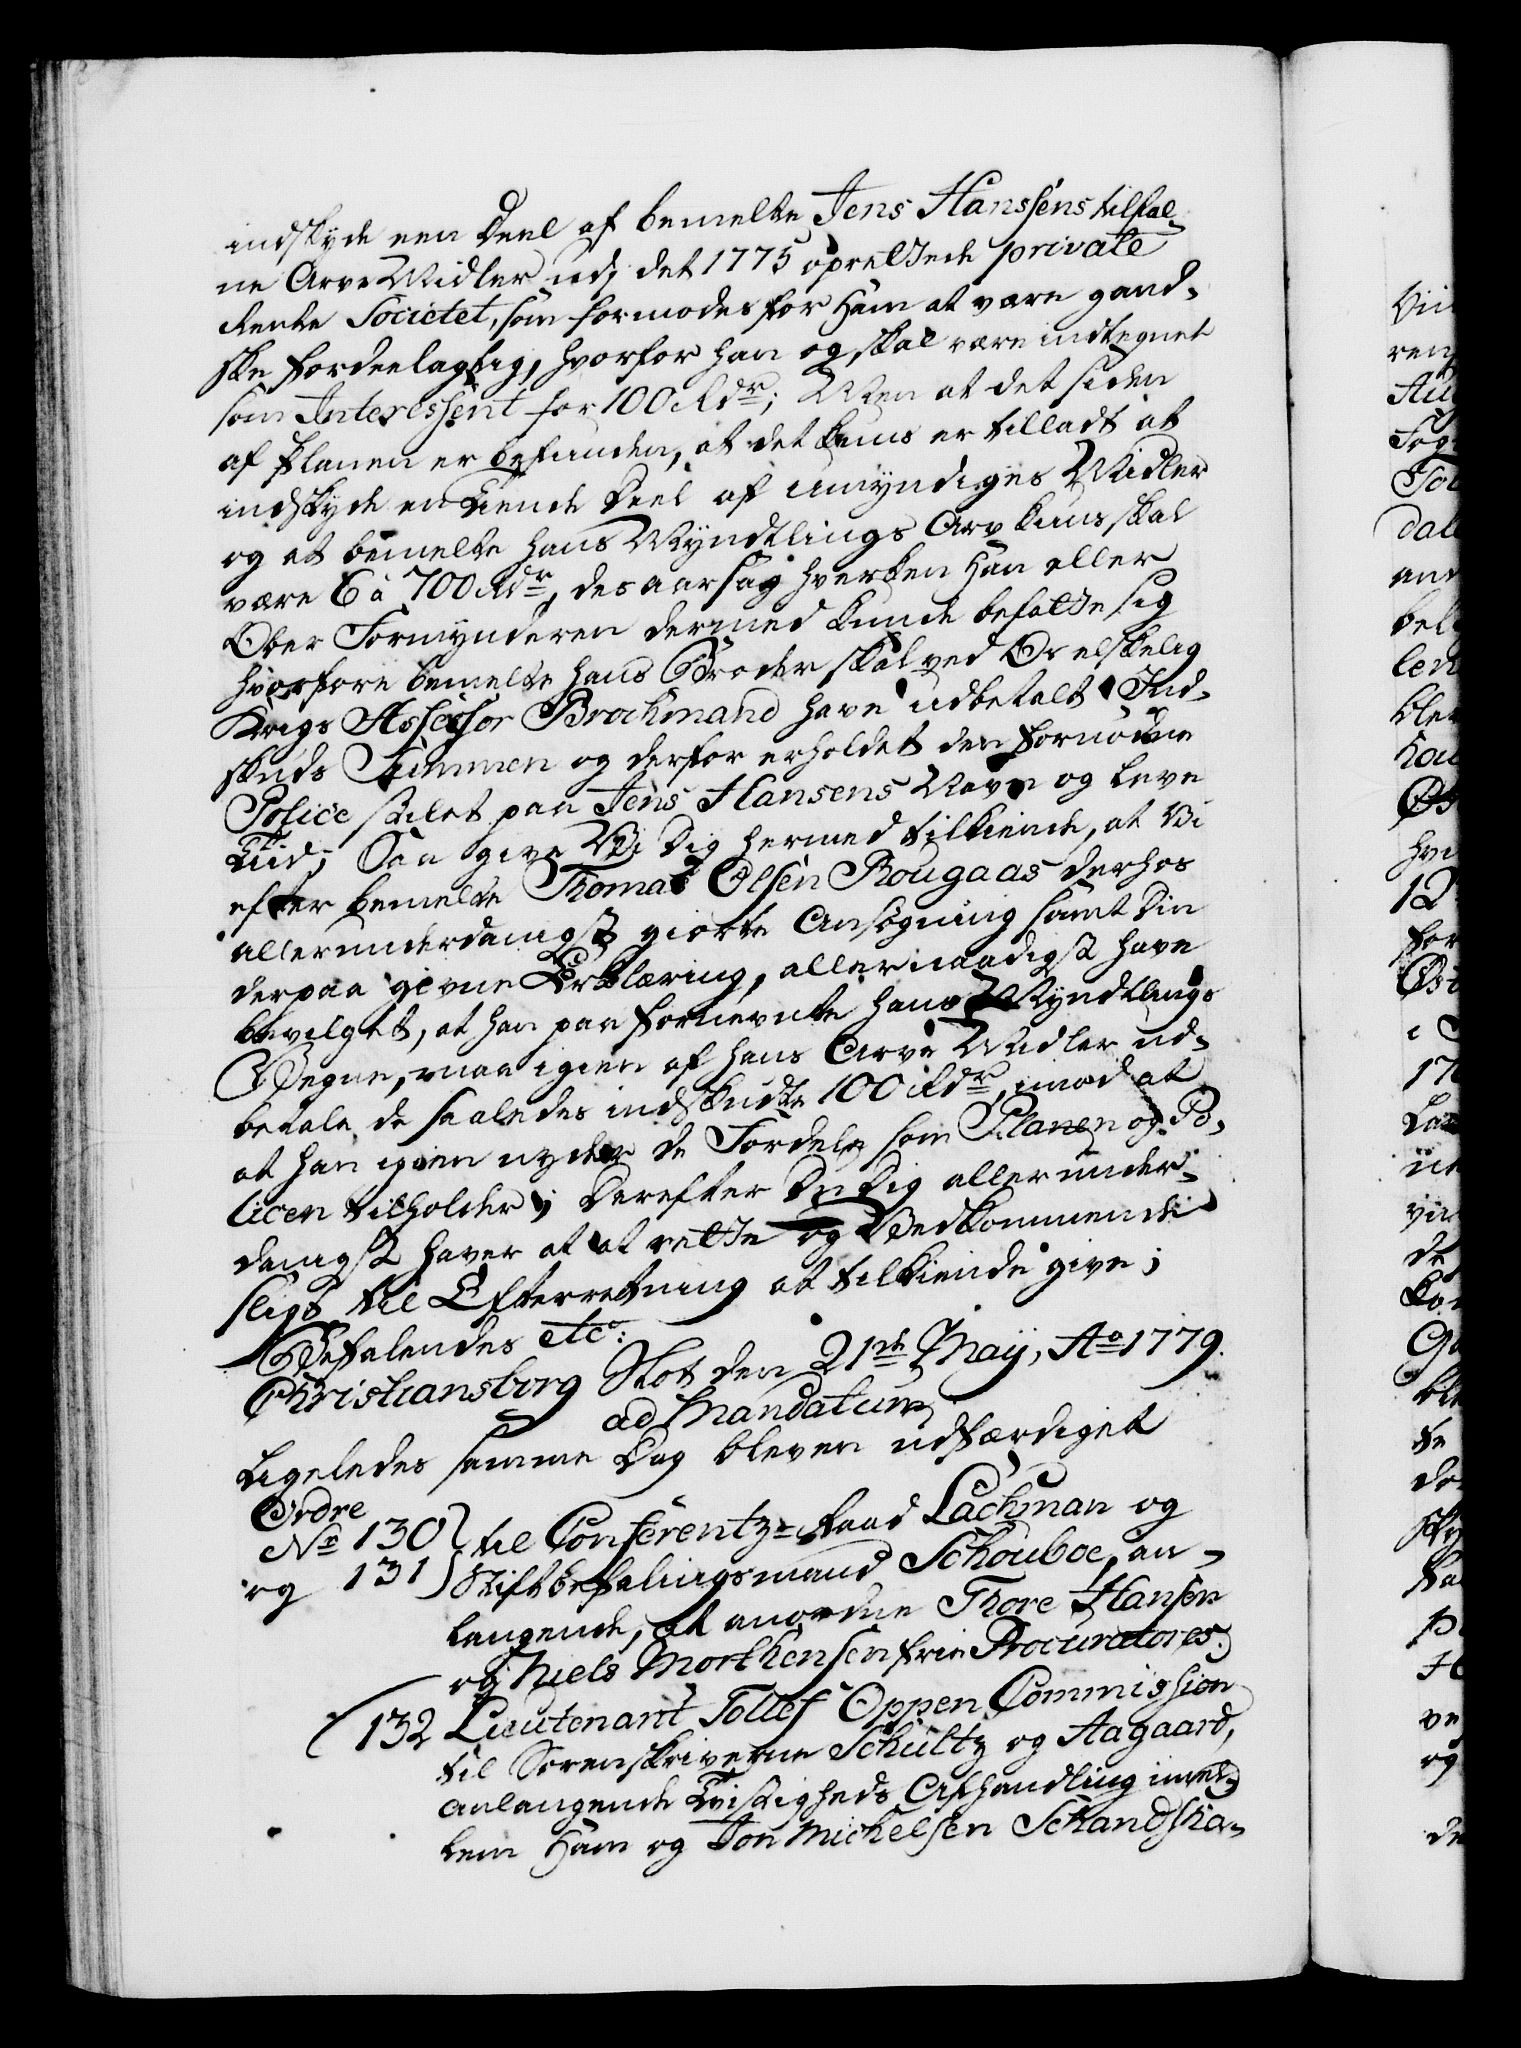 indskyde een Deel af bemelte Jens Hanssens tilfal-
ne Arve Midler udj det 1775 oprettede private
Rente Societet, som formodes for Ham at være gand-
ske fordeelagtig, hvorfor han og skal være indtegnet
som Interessent for 100 Rdr; Men at det siden
af Planen er befunden, at det kuns er tilladt at
indskyde en tiende Deel af umyndiges Midler
og at bemelte hans Myndtlings Arv kuns skal
være 6 à 700 Rdr, des aarsag hverken Han eller
Ober Formynderen dermed kunde befatte sig
hvorfore bemelte hans Broder skal ved Os elskelig
Krigs Assessor Brochmand have udbetalt Ind-
skuds Summen og derfor erholdet den fornødne
Police stilet paa Jens Hansens Navn og Leve
Tiid; Saa give Vi Dig hermed tilkiende, at Vi
efter bemelte Thomas Olsen Rougaas derhos
allerunderdanigst giorte Ansøgning samt Din
derpaa givne Erklæring, allernaadigst have
bevilget, at han paa fornevnte hans Myndtlings
Vegne, maa igien af hans Arve Midler ud-
betale de saaledes indskudte 100 Rdr, imod at
at han igien nyder de Fordele som Planen og Po-
licen tilholder; Derefter Du Dig allerunder-
danigst haver at at rette og Vedkommende
sligt til Efterretning at tilkiende give;
Befalendes etc:
Christiansborg Slot den 21de Maÿ, Ao 1779.
ad Mandatum
Ligeledes samme Dag bleven udfærdiget
Ordre
No 130 til Conferentz-Raad Lachman og
og 131 Stiftbefalingsmand Schouboe, an-
langende, at anordne Thore Hansen
og Niels Morthensen frie Procuratores.
132 Lieutenant Tollef Oppen Commission
til Sorenskriverne Schultz og Aagaard,
anlangende Tvistigheds Afhandling imel-
lem Ham og Jon Michelsen Schandsha-